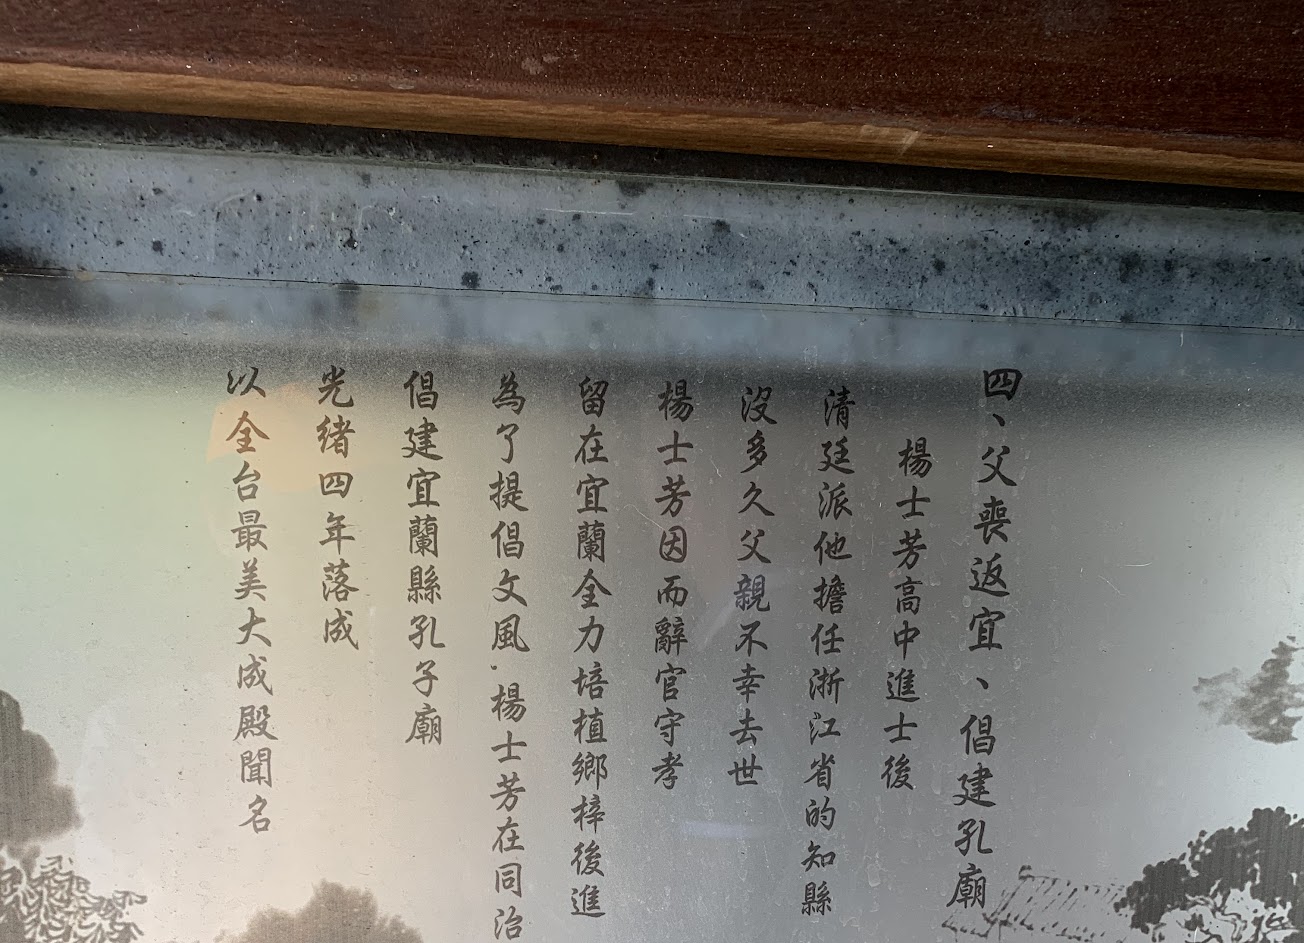 四、父喪返宜、倡建孔廟
楊士芳高中進士後
清廷派他擔任浙江省的知縣
沒多久父親不幸去世
楊士芳因而辭官守孝
留在宜蘭全力培植鄉梓後進
為了提倡文風.楊士芳在同治
倡建宜蘭縣孔子廟
光緒四年落成
以全台最美大成殿聞名